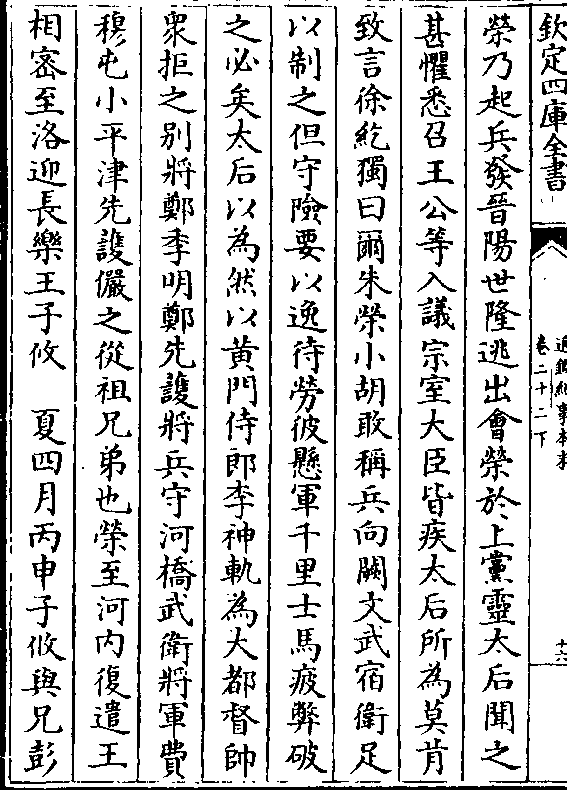 欽定四庫全書
通鑑紀事本末
卷二十二下
十六
榮乃起兵發晉陽世隆逃出會榮於上黨靈太后聞之
甚懼悉召王公等入議宗室大臣皆疾太后所為莫肯
致言徐紇獨曰爾朱榮小胡敢稱兵向闕文武宿衛足
以制之但守險要以逸待勞彼懸軍千里士馬疲弊破
之必矣太后以為然以黃門侍郎李神軌為大都督帥
衆拒之別將鄭季明鄭先護將兵守河橋武衛將軍費
穆屯小平津先護儼之從祖兄弟也榮至河內復遣王
相密至洛迎長樂王子攸　夏四月丙申子攸與兄彭